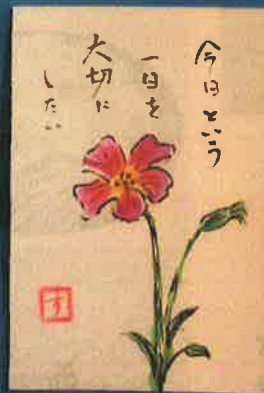 今日という
一日を
大切に
したい
す